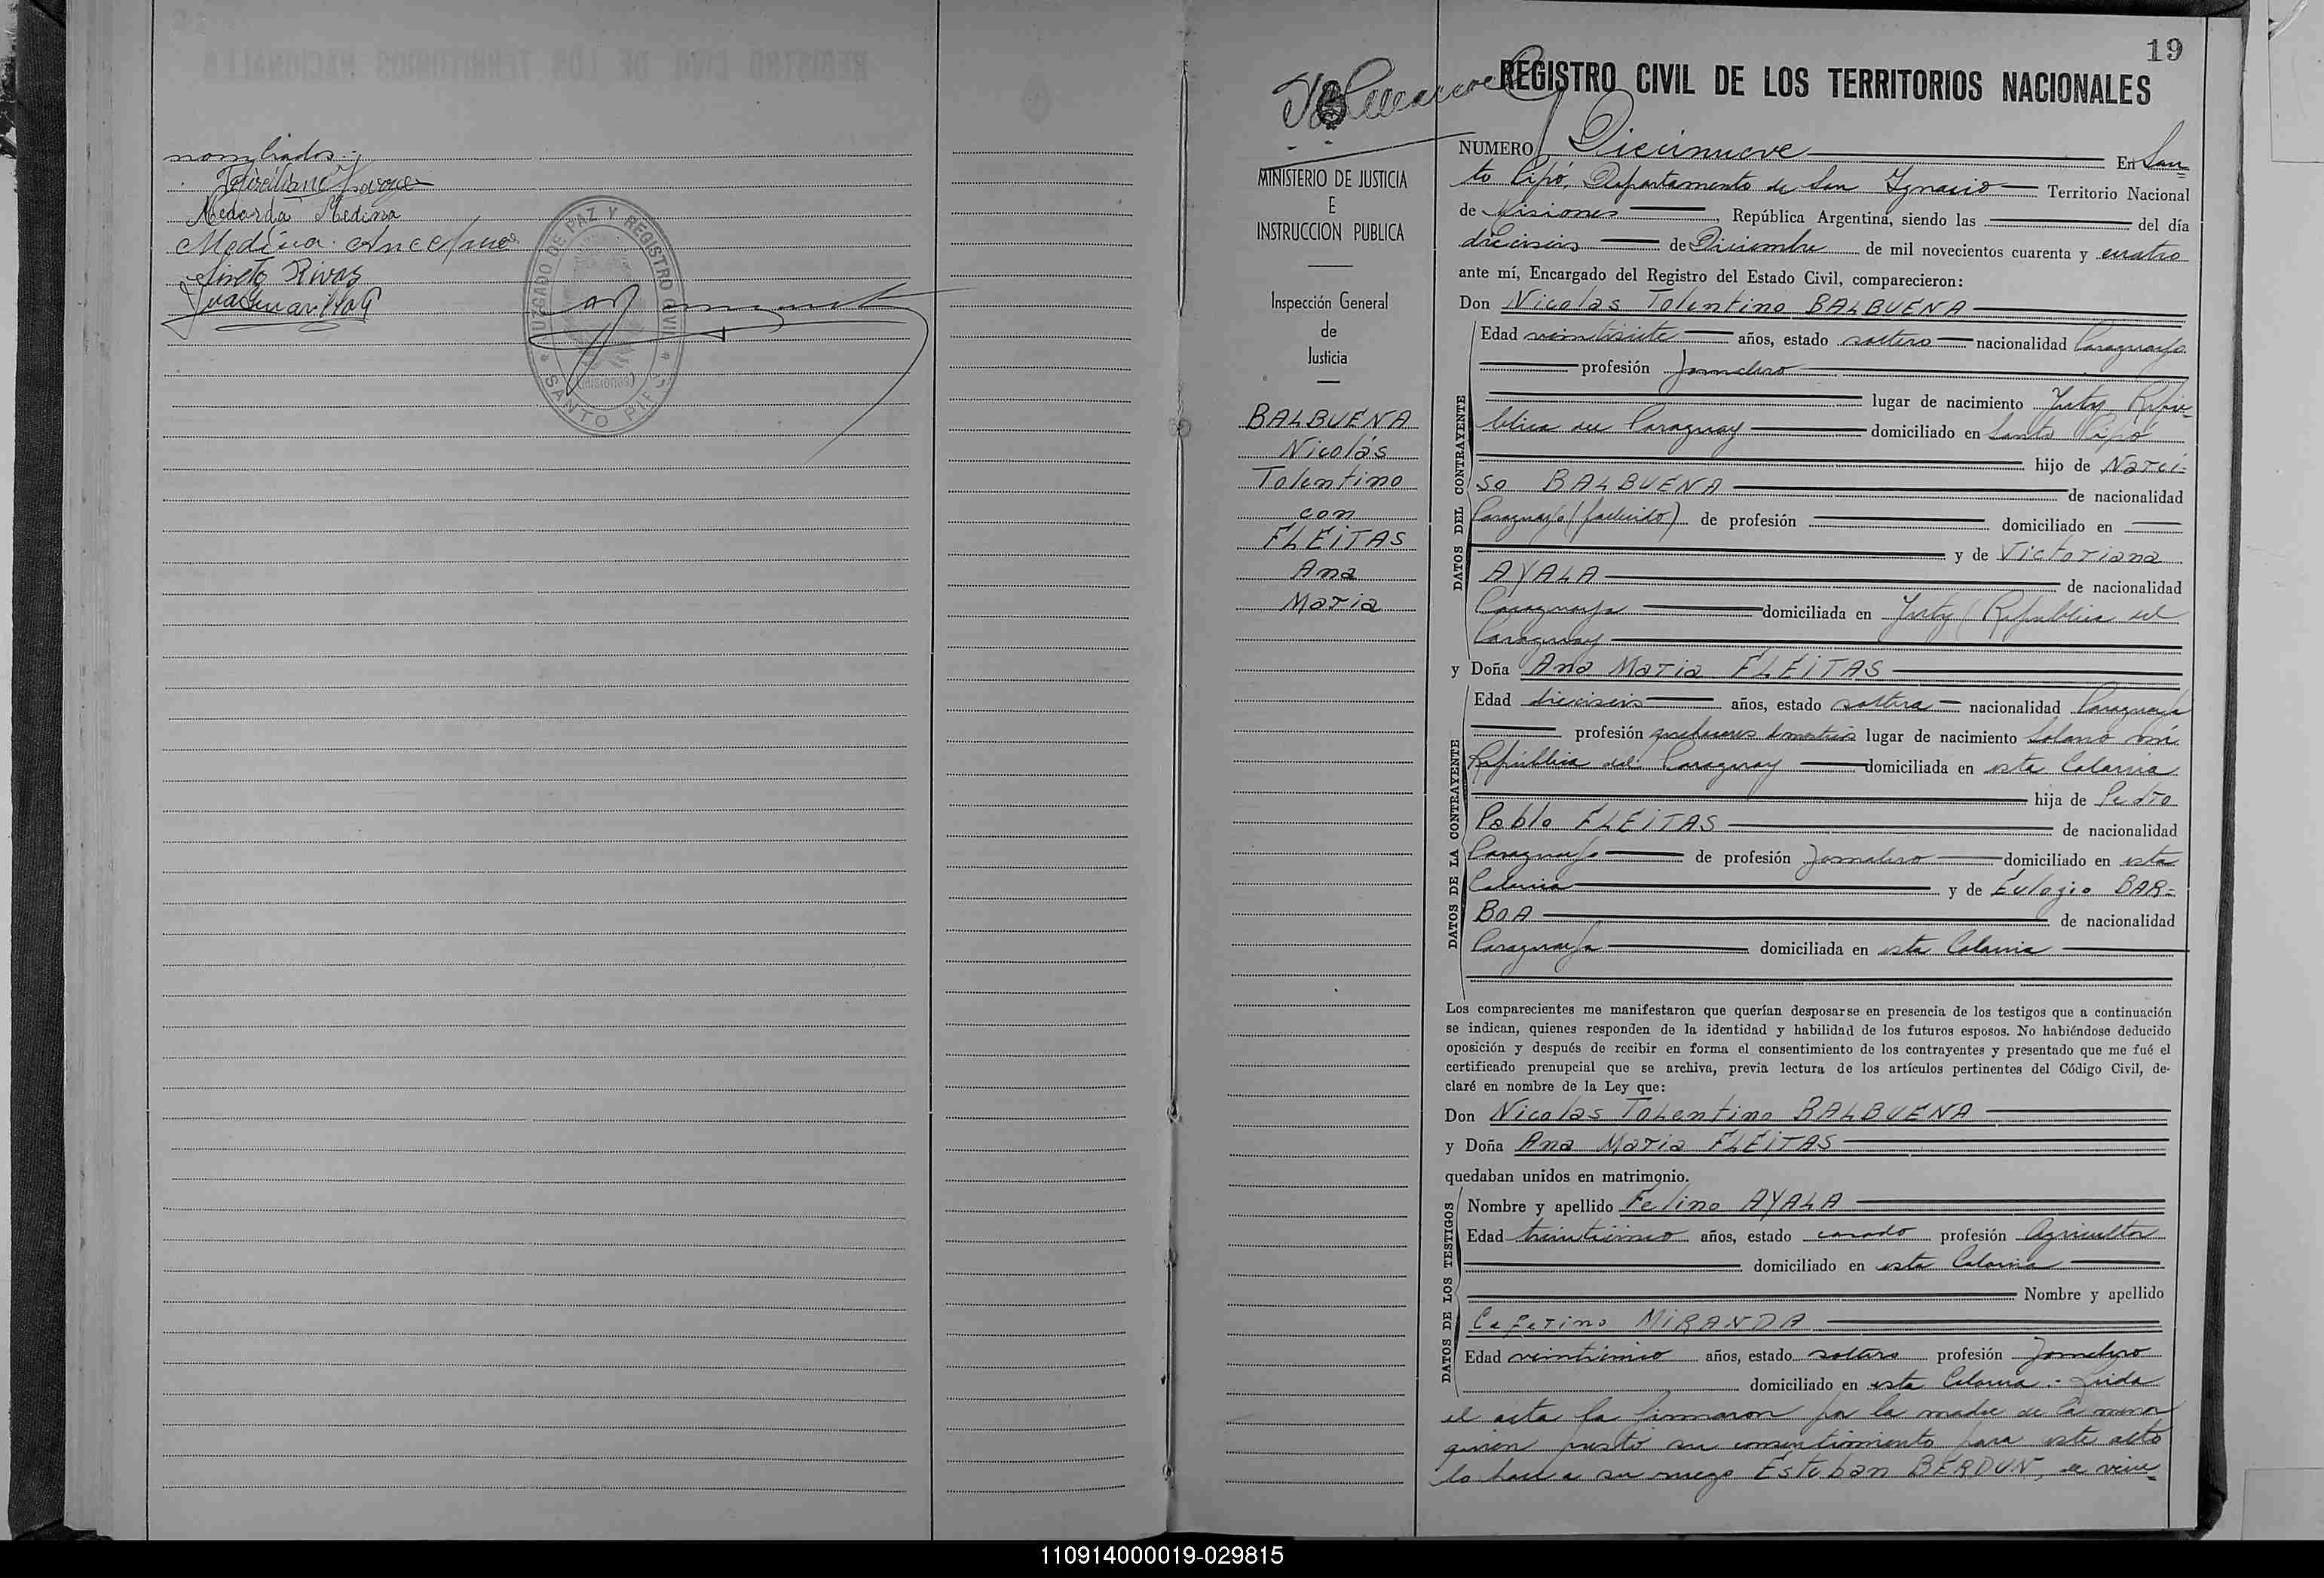 nombrados.-
Medarda Medina
Medina Anceloma
Sinto Rivas
JUZGADO DE PAZ Y REGISTRO CIVIL
(Misiones)
SANTO PIPÓ
19
REGISTRO CIVIL DE LOS TERRITORIOS NACIONALES
MINISTERIO DE JUSTICIA
E
INSTRUCCION PUBLICA
Inspección General
de
Justicia
BALBUENA
Nicolás
Tolentino
con
FLEITAS
Ana
Maria
NUMERO Diecinueve En San-
to Pipó, Departamento de San Ignacio Territorio Nacional
de Misiones, República Argentina, siendo las del día
dieciseis de Diciembre de mil novecientos cuarenta y cuatro
ante mí, Encargado del Registro del Estado Civil, comparecieron:
Don Nicolas Tolentino BALBUENA
DATOS DEL CONTRAYENTE
Edad veintisiete años, estado soltero nacionalidad Paraguayo
profesión Jornalero
lugar de nacimiento Yuty Repú-
blica del Paraguay domiciliado en Santo Pipó
hijo de Narci-
so BALBUENA de nacionalidad
Paraguayo (fallecido) de profesión domiciliado en
y de Victoriana
AYALA de nacionalidad
Paraguaya domiciliada en Yuty (República del
Paraguay
y Doña Ana Maria FLEITAS
DATOS DE LA CONTRAYENTE
Edad dieciseis años, estado soltera nacionalidad Paraguaya
profesión quehaceres domesticos lugar de nacimiento Solano
República del Paraguay domiciliada en esta Colonia
hija de Pedro
Pablo FLEITAS de nacionalidad
Paraguayo de profesión Jornalero domiciliado en esta
Colonia y de Eulogia BAR-
BOA de nacionalidad
Paraguaya domiciliada en esta Colonia
Los comparecientes me manifestaron que querían desposarse en presencia de los testigos que a continuación
se indican, quienes responden de la identidad y habilidad de los futuros esposos. No habiéndose deducido
oposición y después de recibir en forma el consentimiento de los contrayentes y presentado que me fué el
certificado prenupcial que se archiva, previa lectura de los artículos pertinentes del Código Civil, de-
claré en nombre de la Ley que:
Don Nicolas Tolentino BALBUENA
y Doña Ana Maria FLEITAS
quedaban unidos en matrimonio.
DATOS DE LOS TESTIGOS
Nombre y apellido Felino AYALA
Edad treinticinco años, estado casado profesión Agricultor
domiciliado en esta Colonia
Nombre y apellido
Ceferino MIRANDA
Edad veinticinco años, estado soltero profesión Jornalero
domiciliado en esta Colonia.- Leida
el acta la firmaron por la madre de la menor
quien prestó su consentimiento para este acto
lo hace a su ruego Esteban BERDUN, de vein-
110914000019-029815